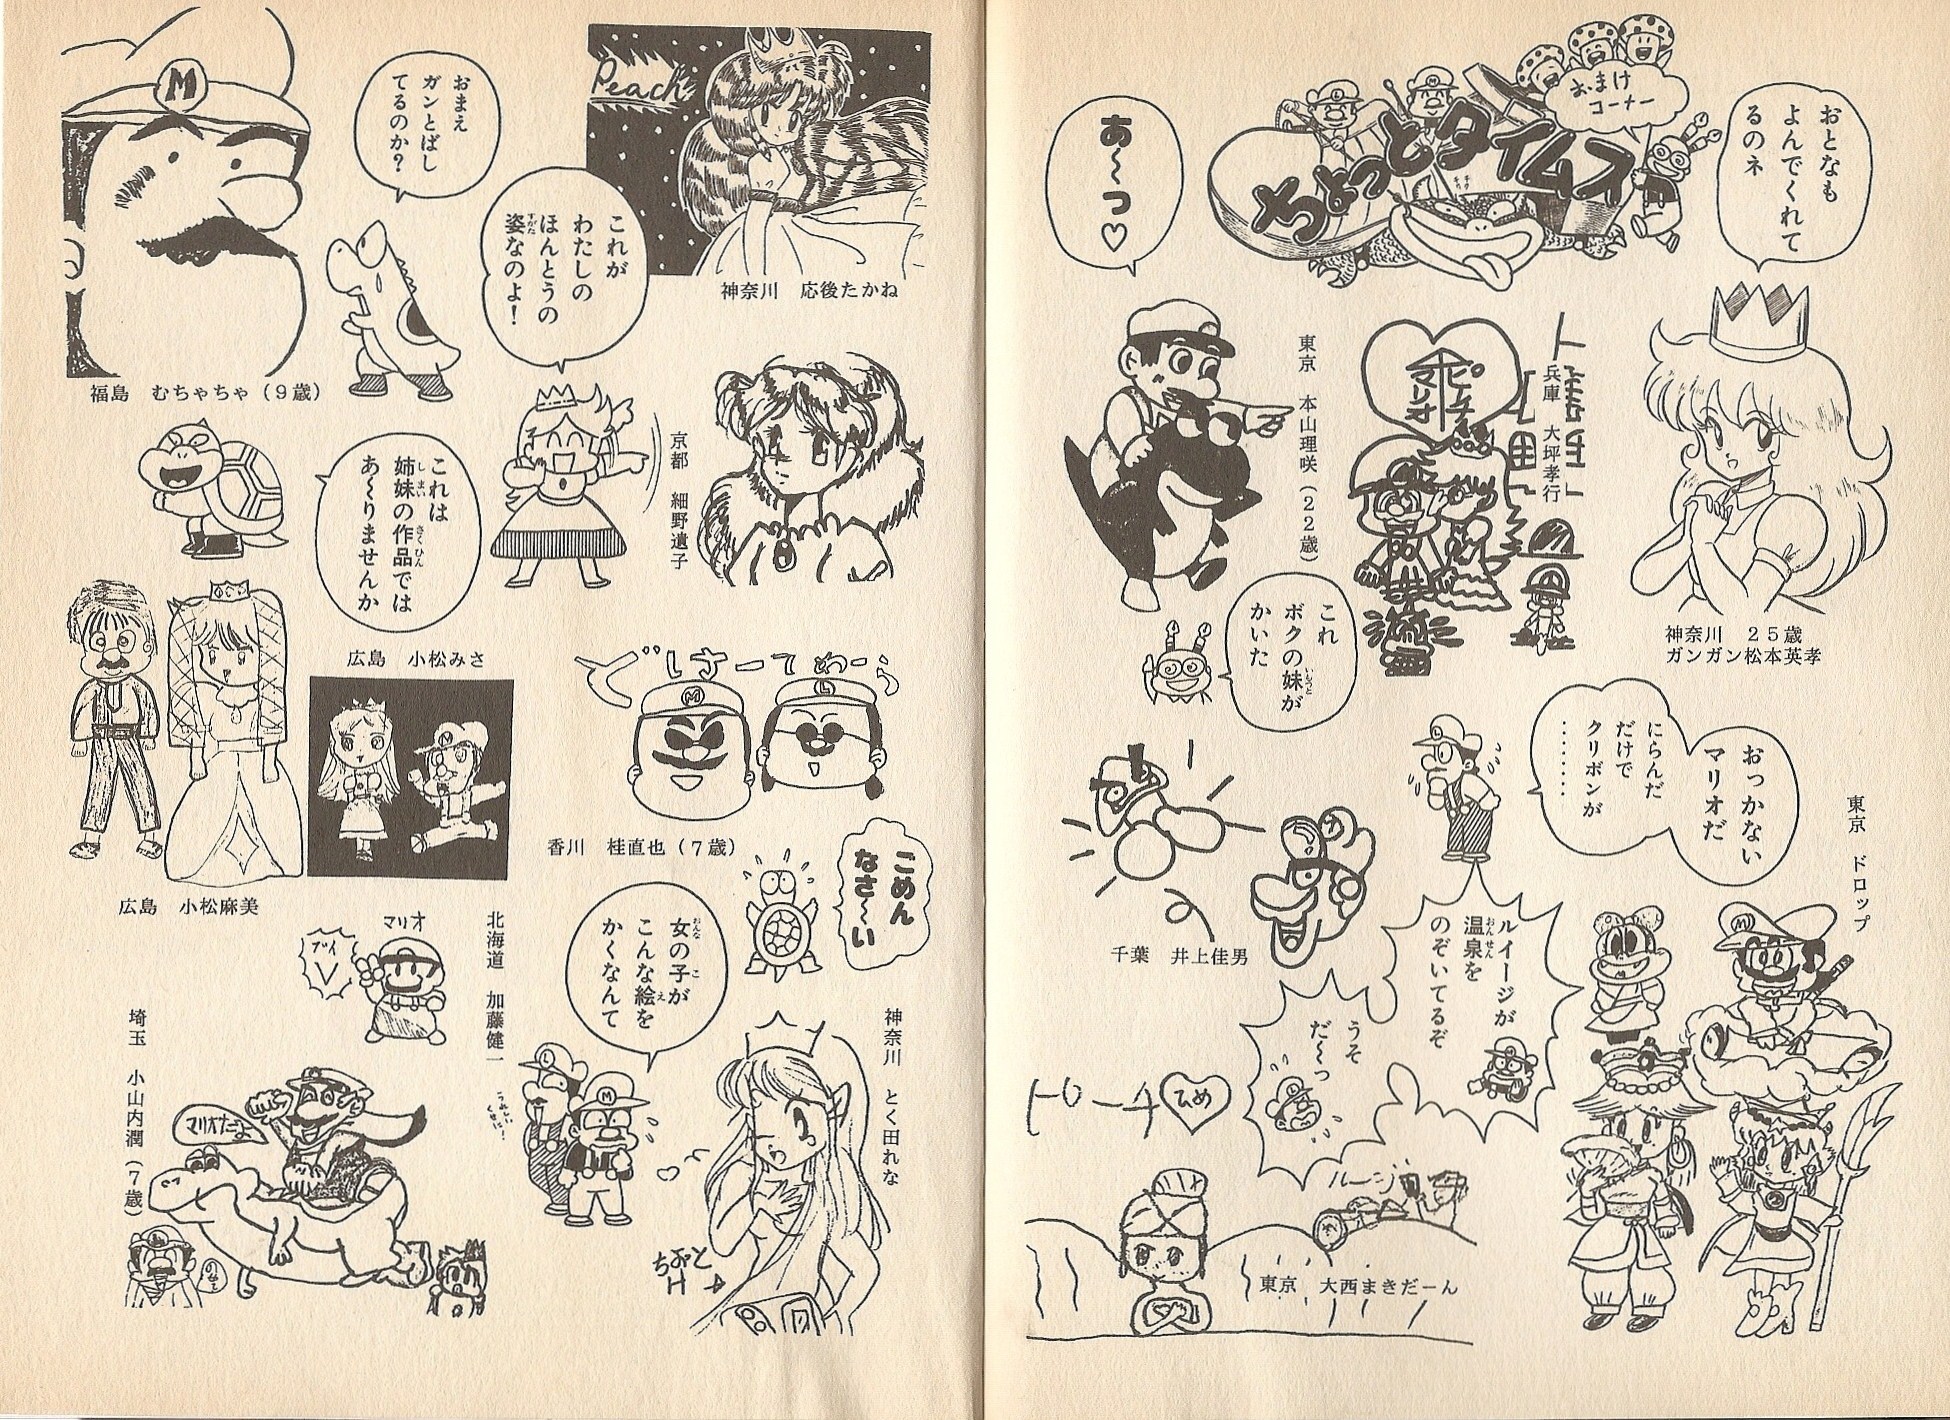 おまけ
コーナー
ちょっとタイムス
おとなも
よんでくれて
るのネ
あ〜っ♡
神奈川　25歳
ガンガン松本英孝
兵庫　大坪孝行
ピーチ
マリオ
東京　本山理咲（22歳）
これ
ボクの妹が
かいた
いもうと
おっかない
マリオだ
にらんだ
だけで
クリボンが
………
東京　ドロップ
千葉　井上佳男
ルイージが
温泉を
おんせん
のぞいてるぞ
うそ
だ〜っ
ピーチ
ひめ
ルージ
東京　大西まきだーん
Peach
神奈川　応後たかね
おまえ
ガンとばし
てるのか？
これが
わたしの
ほんとうの
姿なのよ！
すがた
福島　むちゃちゃ（9歳）
京都　細野遺子
これは
姉妹の作品では
しまい　さくひん
あ〜りませんか
広島　小松みさ
広島　小松麻美
どしさーてめーら
香川　桂直也（7歳）
ごめん
なさ〜い
女の子が
おんな　こ
こんな絵を
え
かくなんて
神奈川　とく田れな
うれしい
くせに！
ちょっと
H
北海道　加藤健一
マリオ
ブイ
V
埼玉　小山内潤（7歳）
マリオだよ
M
L